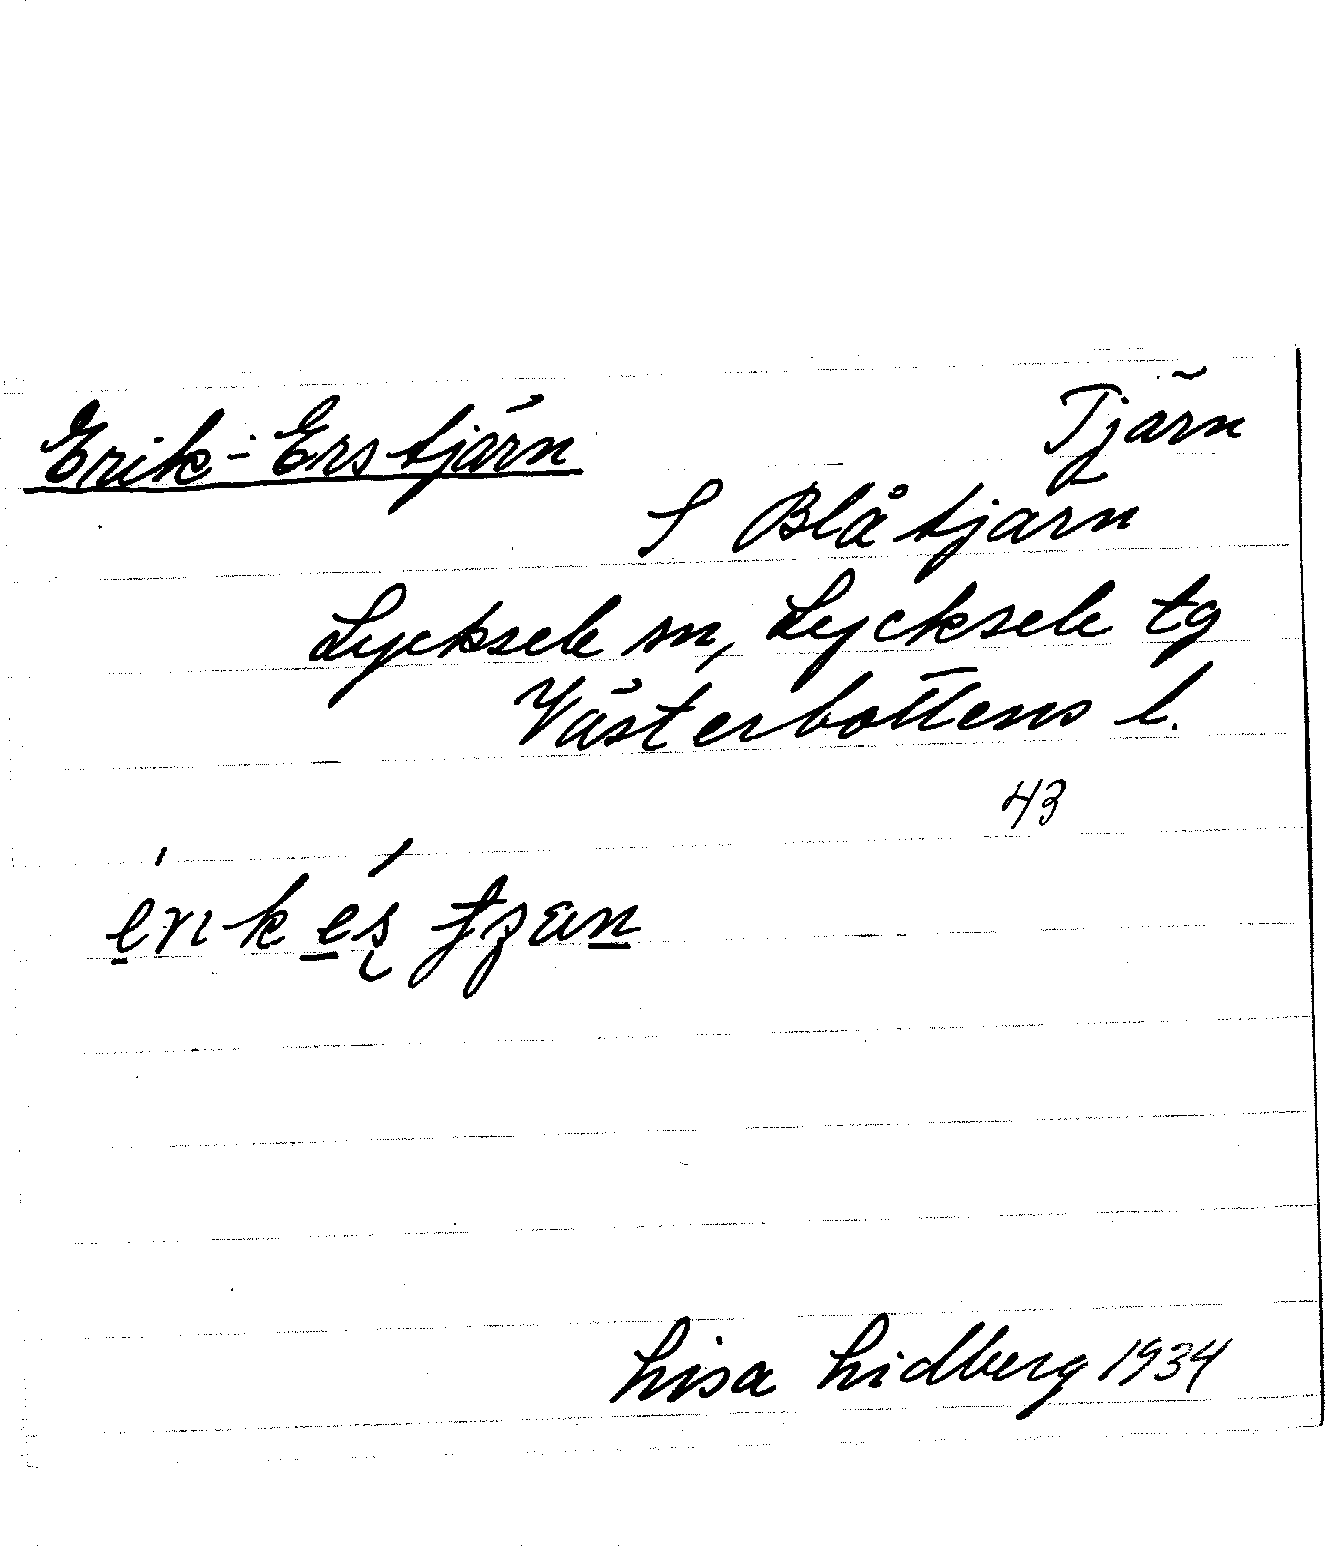 Erik-Erstjärn
Tjärn
S Blåtjärn
Lycksele sn, Lycksele tg
Västerbottens l.
43
Lisa Lidberg 1934